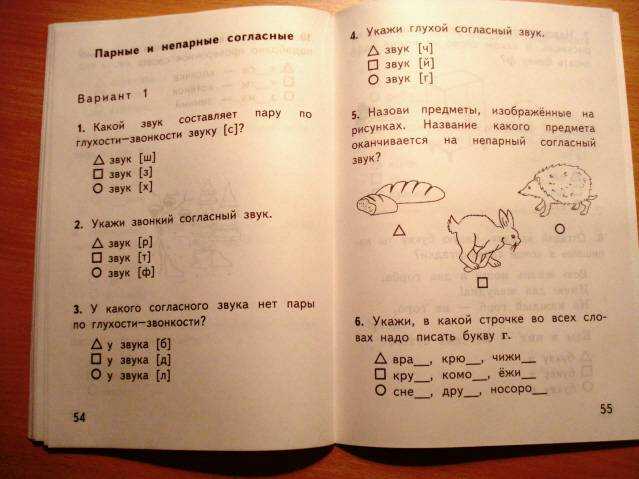 Парные и непарные согласные
Вариант 1
1. Какой звук составляет пару по
глухости—звонкости звуку [с]?
звук [ш]
звук [з]
звук [х]
2. Укажи звонкий согласный звук.
звук [р]
звук [т]
звук [ф]
3. У какого согласного звука нет пары
по глухости—звонкости?
у звука [б]
у звука [д]
у звука [л]
54
4. Укажи глухой согласный звук.
звук [ч]
звук [й]
звук [г]
5. Назови предметы, изображённые на
рисунках. Название какого предмета
оканчивается на непарный согласный
звук?
6. Укажи, в какой строчке во всех сло-
вах надо писать букву г.
вра__, крю__, чижи__
кру__, комо__, ёжи__
сне__, дру__, носоро__
55